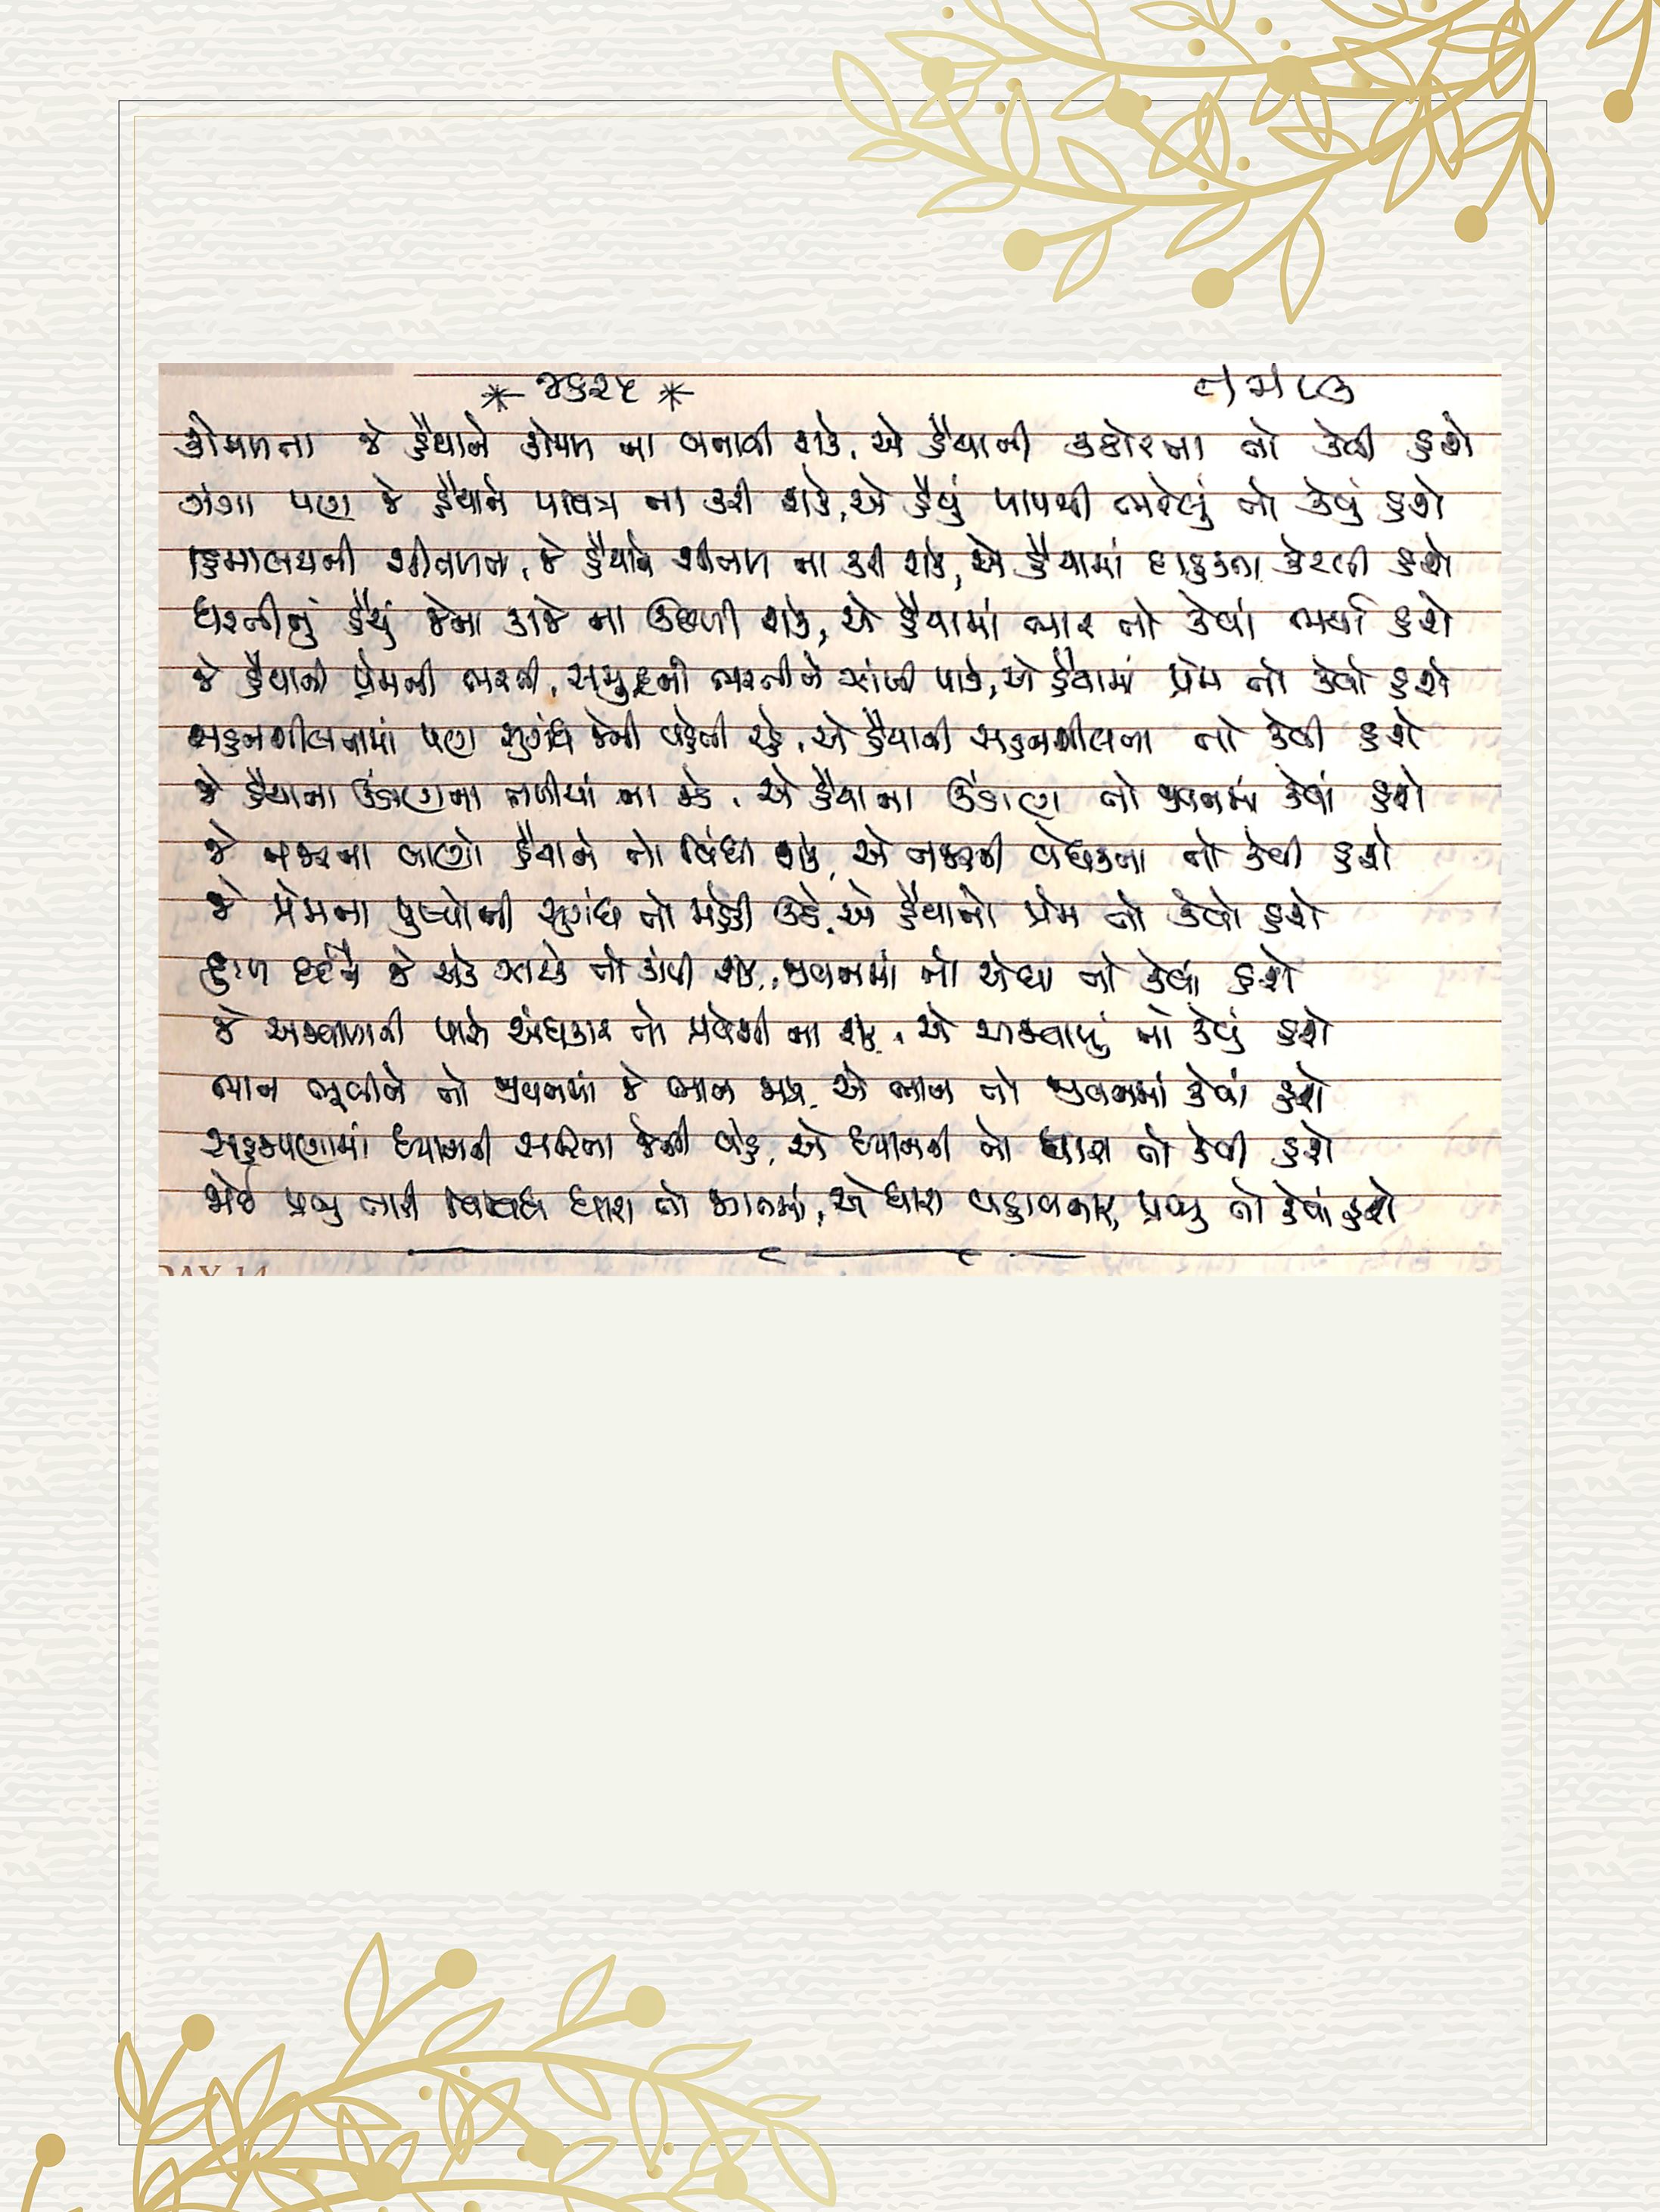 * જકરષ *
કોમળતા જે હૈયાને કોમળ ના બનાવી શકે, એ હૈયાની કઠોરતા તો કેવી હશે
ગંગા પણ જે હૈયાને પવિત્ર ના કરી શકે, એ હૈયું પાપથી ભરેલું તો કેવું હશે
હિમાલયની શીતળતા, જે હૈયાને શીતળ ના કરી શકે, એ હૈયામાં દાહકતા કેટલી હશે
ધરતીનું હૈયું જેના કાજે ના ઉછળી શકે, એ હૈયામાં ભાર તો કેવાં ભર્યાં હશે
જે હૈયાની પ્રેમની ભરતી, સમુદ્રની ભરતીને ઝાંખી પાડે, એ હૈયામાં પ્રેમ તો કેવો હશે
સહનશીલતામાં પણ સુગંધ જેની વહેતી રહે, એ હૈયાની સહનશીલતા તો કેવી હશે
જે હૈયાના ઉંડાણના તળીયાં ના જડે, એ હૈયાના ઉંડાણ તો જીવનમાં કેવાં હશે
જે નજરના બાણો હૈયાને તો વિંધી શકે, એ નજરની વેધકતા તો કેવી હશે
જે પ્રેમના પુષ્પોની સુગંધ તો મહેકી ઉઠે, એ હૈયાનો પ્રેમ તો કેવો હશે
જે એક ઝાટકે તો કાપી શકે, જીવનમાં તો એ ઘા તો કેવાં હશે
જે અજવાળાની પાસે અંધકાર તો પ્રવેશી ના શકે, એ અજવાળું તો કેવું હશે
ભાન ભૂલીને તો જીવનમાં જે ભાન મળે, એ ભાન તો જીવનમાં કેવાં હશે
સહજપણામાં ધ્યાનની સરિતા જેની વહે, એ ધ્યાનની તો ધારા તો કેવી હશે
જોઈ પ્રભુ તારી વિવિધ ધારા તો જગતમાં, એ ધારા વહાવનાર પ્રભુ તો કેવાં હશે
DAY 14